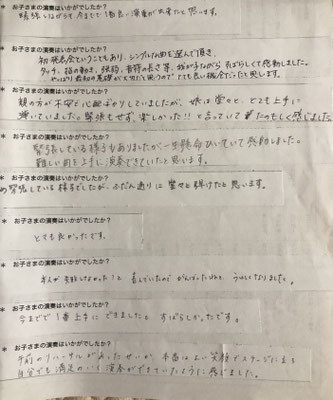 緊張しながらも今までで1番良い演奏が出来たと思います。
* お子さまの演奏はいかがでしたか?
初発表会ということもあり、シンプルな曲を選んで頂き、
タッチ、指の動き、強弱、音符の長さ等、我が子ながら すばらしくて感動しました。
やっぱり最初の基礎が大切だと思うので とても良い機会だったと思います。
* お子さまの演奏はいかがでしたか?
親の方が不安と心配ばかりしていましたが、娘は堂々と、とても上手に
弾いていました。緊張もせず、楽しかった!!と言っていて たのもしく感じました。
* お子さまの演奏はいかがでしたか?
緊張している様子もありましたが一生懸命ひいていて感動しました。
難しい曲を上手に演奏できていたと思います。
* お子さまの演奏はいかがでしたか?
緊張している様子でしたが、ふだん通りに堂々と弾けたと思います。
* お子さまの演奏はいかがでしたか?
とても良かったです。
* お子さまの演奏はいかがでしたか?
本人が失敗しなかった!と喜んでいたので がんばったねと うれしくなりました。
* お子さまの演奏はいかがでしたか?
今までで1番上手にできました。すばらしかったです。
* お子さまの演奏はいかがでしたか?
午前のリハーサルがあったせいか、本番はよい笑顔でステージに立ち
自分でも満足のいく演奏ができていたように感じました。